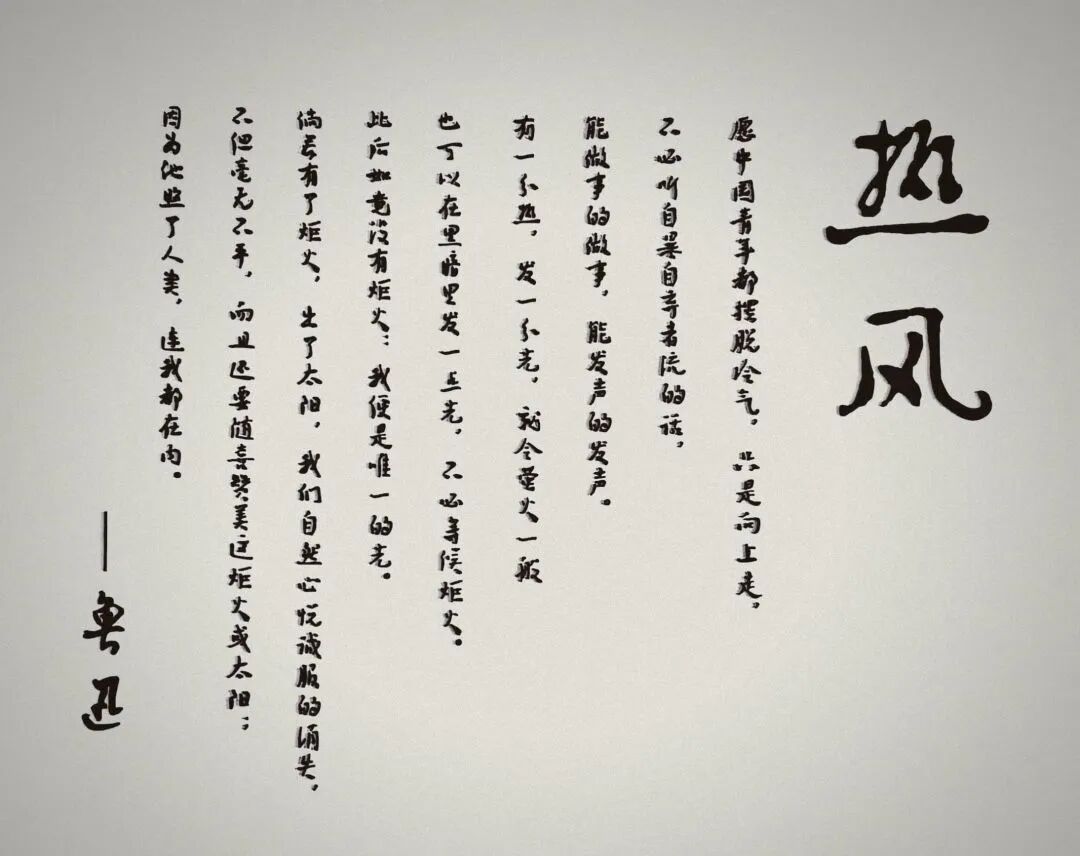 热风
愿中国青年都摆脱冷气，只是向上走，
不必听自暴自弃者流的话，
能做事的做事，能发声的发声。
有一分热，发一分光，就令萤火一般
也可以在黑暗里发一点光，不必等候炬火。
此后如竟没有炬火：我便是唯一的光。
倘若有了炬火，出了太阳，我们自然心悦诚服的消失，
不但毫无不平，而且还要随喜赞美这炬火或太阳；
因为他照了人类，连我都在内。
—鲁迅